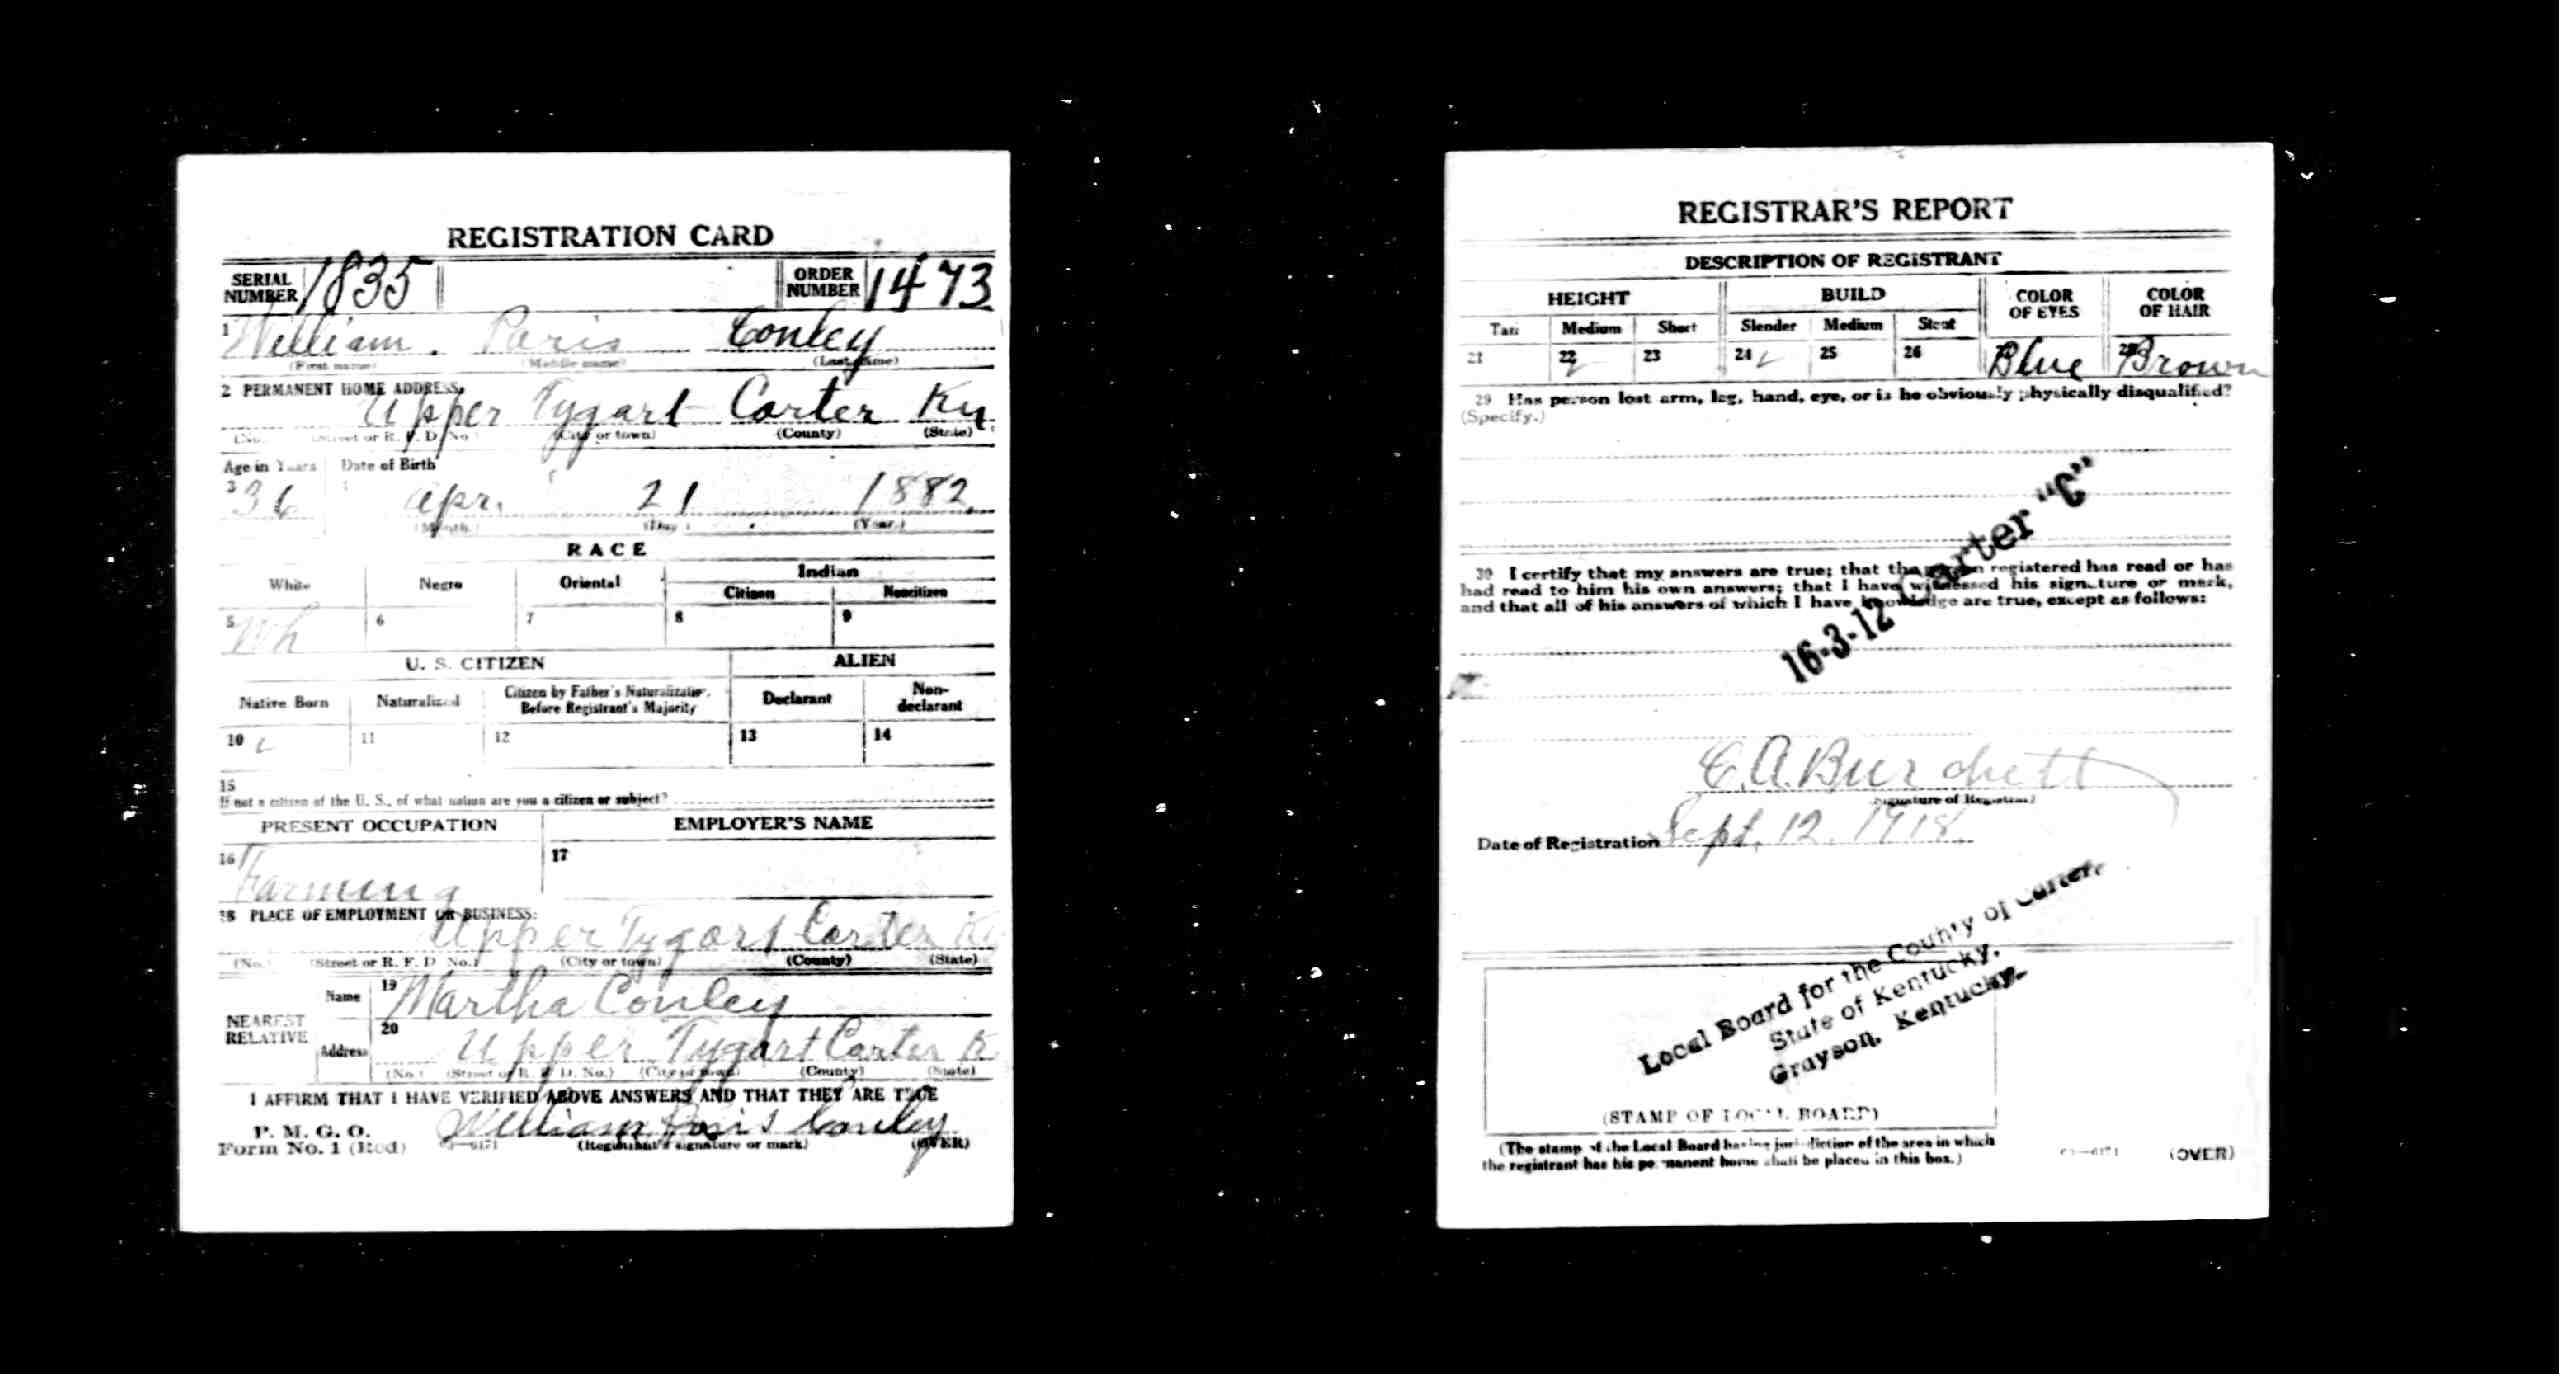 REGISTRATION CARD
SERIAL NUMBER 1835 ORDER NUMBER 1473
1 William. Paris Conley
(First name) (Middle name) (Last name)
2 PERMANENT HOME ADDRESS:
Upper Tygart Carter Ky
(No.) (Street or R. F. D. No.) (City or town) (County) (State)
Age in Years Date of Birth
3 36 Apr. 21 1882
(Month.) (Day.) (Year.)
RACE
White Negro Oriental Indian
Citizen Noncitizen
5 Wh 6 7 8 9
U. S. CITIZEN ALIEN
Native Born Naturalized Citizen by Father's Naturalization Before Registrant's Majority Declarant Non-declarant
10 11 12 13 14
15
If not a citizen of the U. S., of what nation are you a citizen or subject?
PRESENT OCCUPATION EMPLOYER'S NAME
16 Farming 17
18 PLACE OF EMPLOYMENT OR BUSINESS:
Upper Tygart Carter Ky
(No.) (Street or R. F. D. No.) (City or town) (County) (State)
NEAREST RELATIVE
Name 19 Martha Conley
Address 20 Upper Tygart Carter K
(No.) (Street or R. F. D. No.) (City or town) (County) (State)
I AFFIRM THAT I HAVE VERIFIED ABOVE ANSWERS AND THAT THEY ARE TRUE
P. M. G. O.
Form No. 1 (Red) William Paris Conley
(Registrant's signature or mark) (OVER)
REGISTRAR'S REPORT
DESCRIPTION OF REGISTRANT
HEIGHT BUILD COLOR OF EYES COLOR OF HAIR
Tall Medium Short Slender Medium Stout
21 22 23 24 25 26 Blue Brown
29 Has person lost arm, leg, hand, eye, or is he obviously physically disqualified?
(Specify.)
16-3-12 Carter "C"
30 I certify that my answers are true; that the person registered has read or has
had read to him his own answers; that I have witnessed his signature or mark,
and that all of his answers of which I have knowledge are true, except as follows:
E. A. Burchett
(Signature of Registrar)
Date of Registration Sept. 12. 1918.
Local Board for the County of Carter,
State of Kentucky,
Grayson, Kentucky.
(STAMP OF LOCAL BOARD)
(The stamp of the Local Board having jurisdiction of the area in which
the registrant has his permanent home shall be placed in this box.)
(OVER)